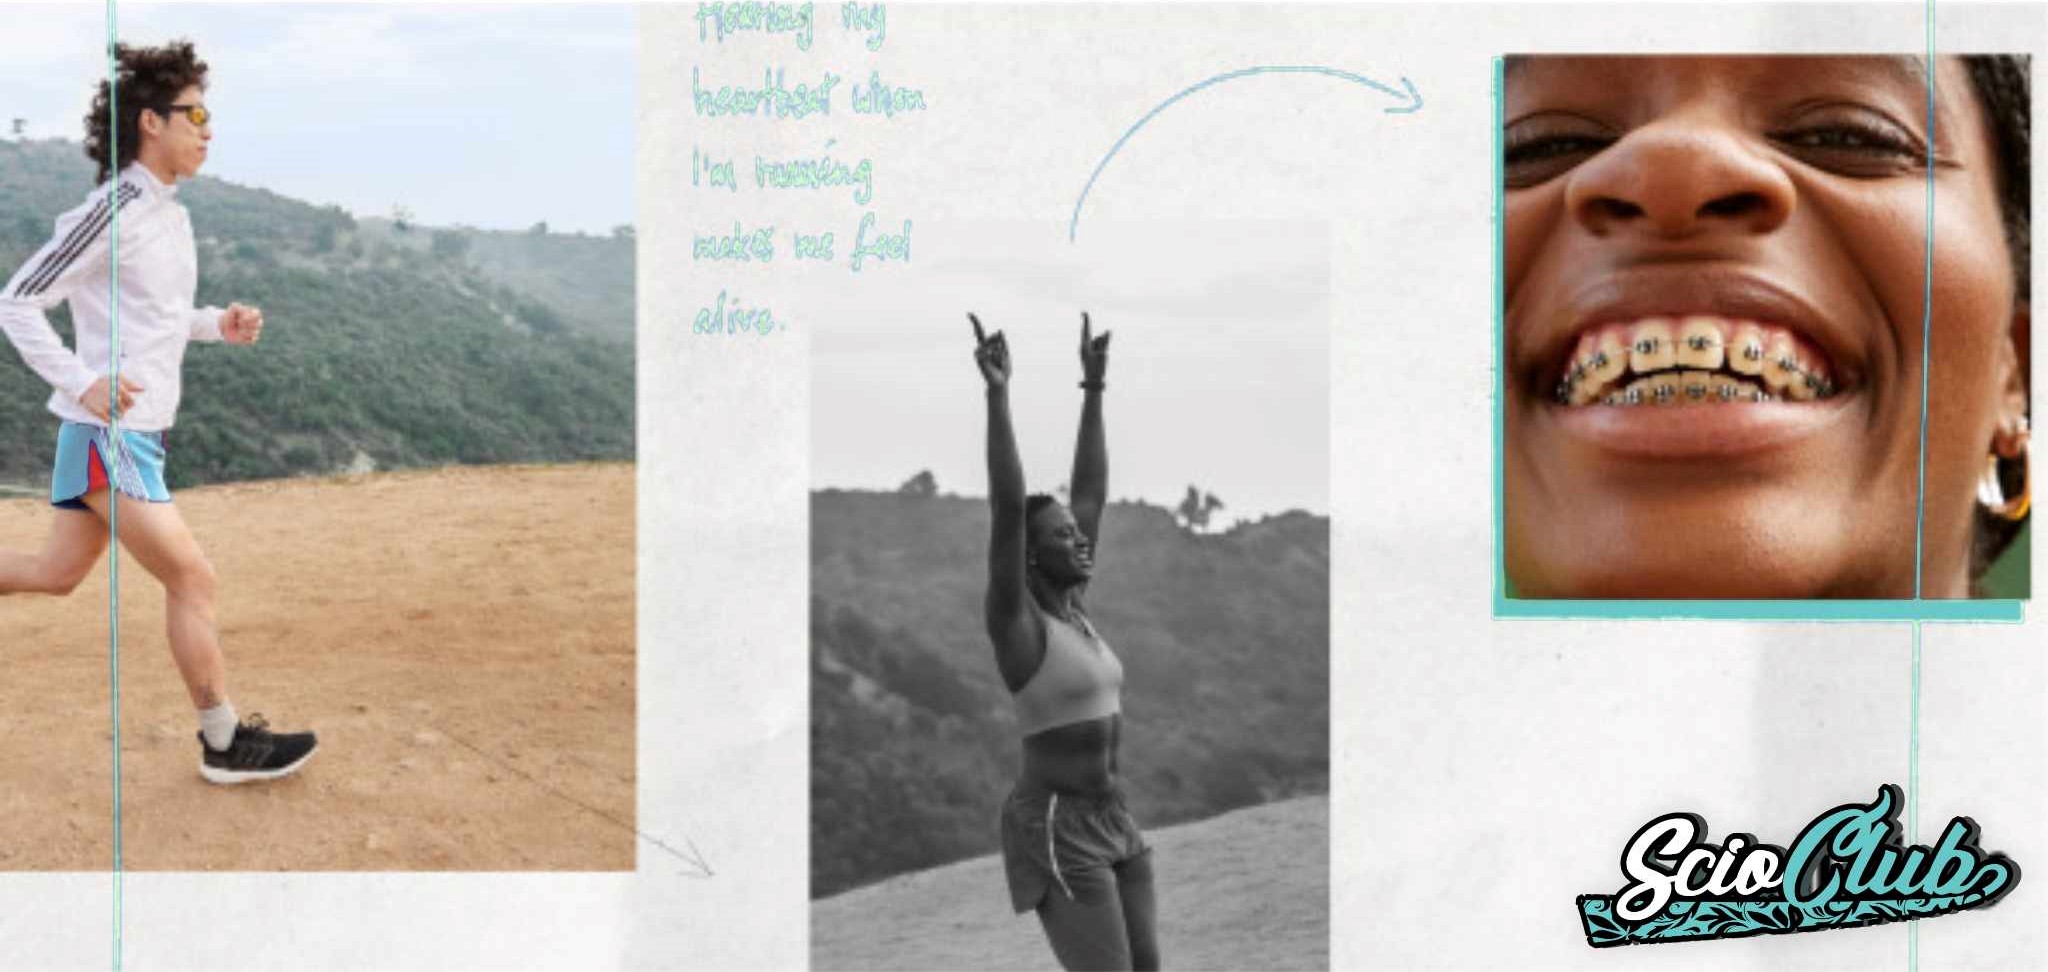 Hearing my
heartbeat when
I'm running
makes me feel
alive.
ScioClub